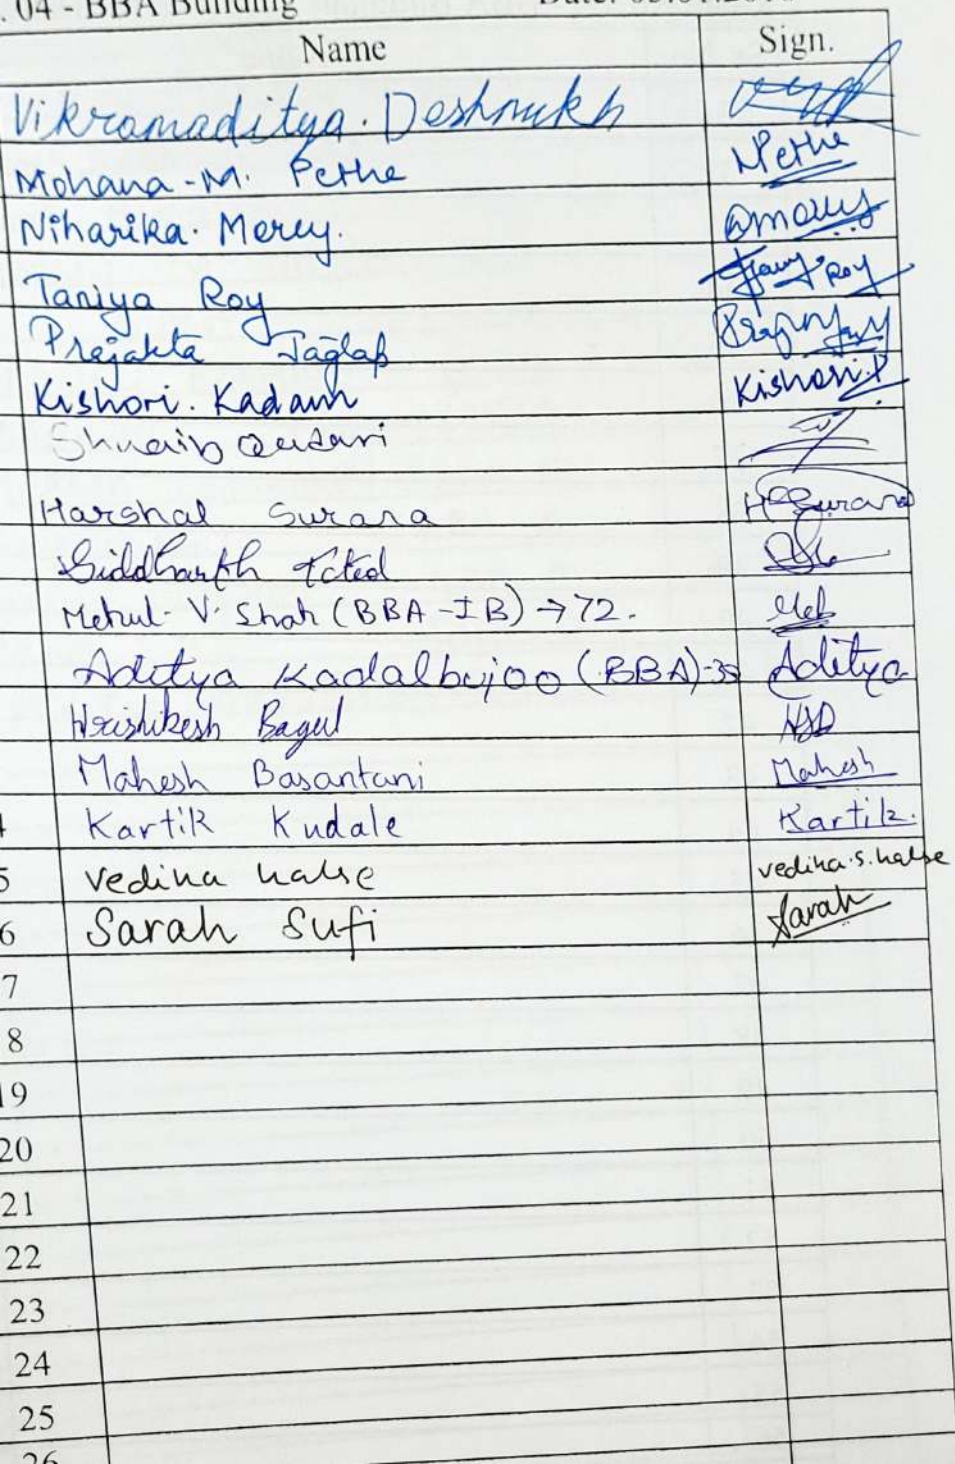 . 04 - BBA Building
Name Sign.
Vikramaditya. Deshmukh
Mohana - M. Pethe MPethe
Niharika. Mercy.
Taniya Roy Roy
Prajakta Jagtap
Kishori. Kadam Kishori.
Shuaib Quadari
Harshal Surana HSurana
Siddharth
Mehul- V. Shah (BBA - IB) → 72.
Aditya Kadalbujoo (BBA)-39 Aditya
Hrishikesh Bagul
Mahesh Basantani Mahesh
4 Kartik Kudale Kartik.
5 vedika halse vedika.s.halse
6 Sarah Sufi Sarah
7
8
19
20
21
22
23
24
25
26